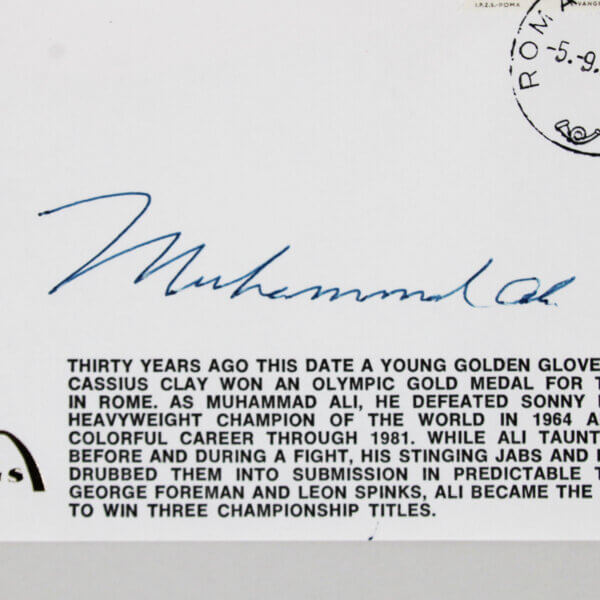 I.P.Z.S.-ROMA
VANGE
ROMA
-5.-9.
Muhammad Ali
THIRTY YEARS AGO THIS DATE A YOUNG GOLDEN GLOVE
CASSIUS CLAY WON AN OLYMPIC GOLD MEDAL FOR T
IN ROME. AS MUHAMMAD ALI, HE DEFEATED SONNY
HEAVYWEIGHT CHAMPION OF THE WORLD IN 1964 A
COLORFUL CAREER THROUGH 1981. WHILE ALI TAUNT
BEFORE AND DURING A FIGHT, HIS STINGING JABS AND
DRUBBED THEM INTO SUBMISSION IN PREDICTABLE T
GEORGE FOREMAN AND LEON SPINKS, ALI BECAME THE
TO WIN THREE CHAMPIONSHIP TITLES.